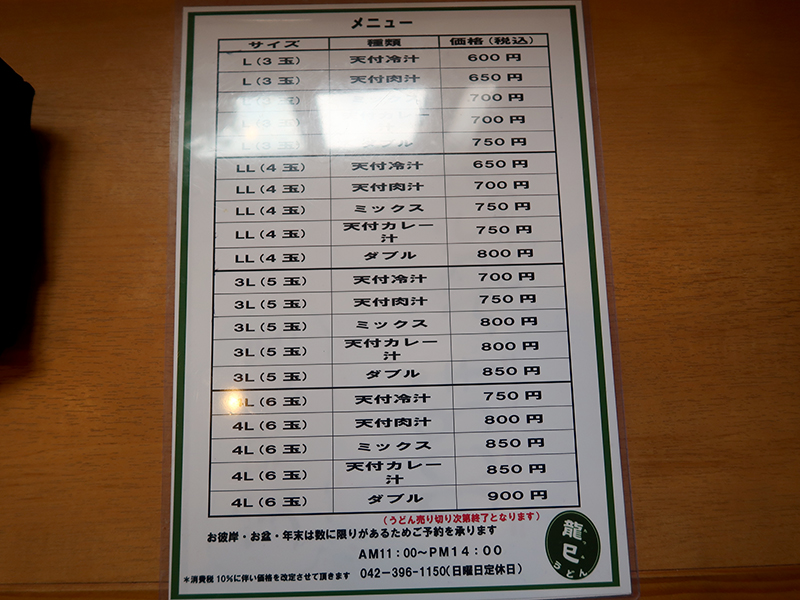 メニュー
サイズ 種類 価格(税込)
L(3 玉) 天付冷汁 600 円
L(3 玉) 天付肉汁 650 円
L(3 玉) 700 円
L(3 玉) 700 円
L(3 玉) ダブル 750 円
LL(4 玉) 天付冷汁 650 円
LL(4 玉) 天付肉汁 700 円
LL(4 玉) ミックス 750 円
LL(4 玉) 天付カレー汁 750 円
LL(4 玉) ダブル 800 円
3L(5 玉) 天付冷汁 700 円
3L(5 玉) 天付肉汁 750 円
3L(5 玉) ミックス 800 円
3L(5 玉) 天付カレー汁 800 円
3L(5 玉) ダブル 850 円
4L(6 玉) 天付冷汁 750 円
4L(6 玉) 天付肉汁 800 円
4L(6 玉) ミックス 850 円
4L(6 玉) 天付カレー汁 850 円
4L(6 玉) ダブル 900 円
(うどん売り切り次第終了となります)
お彼岸・お盆・年末は数に限りがあるためご予約を承ります
AM11:00~PM14:00
*消費税10%に伴い価格を改定させて頂きます 042-396-1150(日曜日定休日)
龍巳
うどん